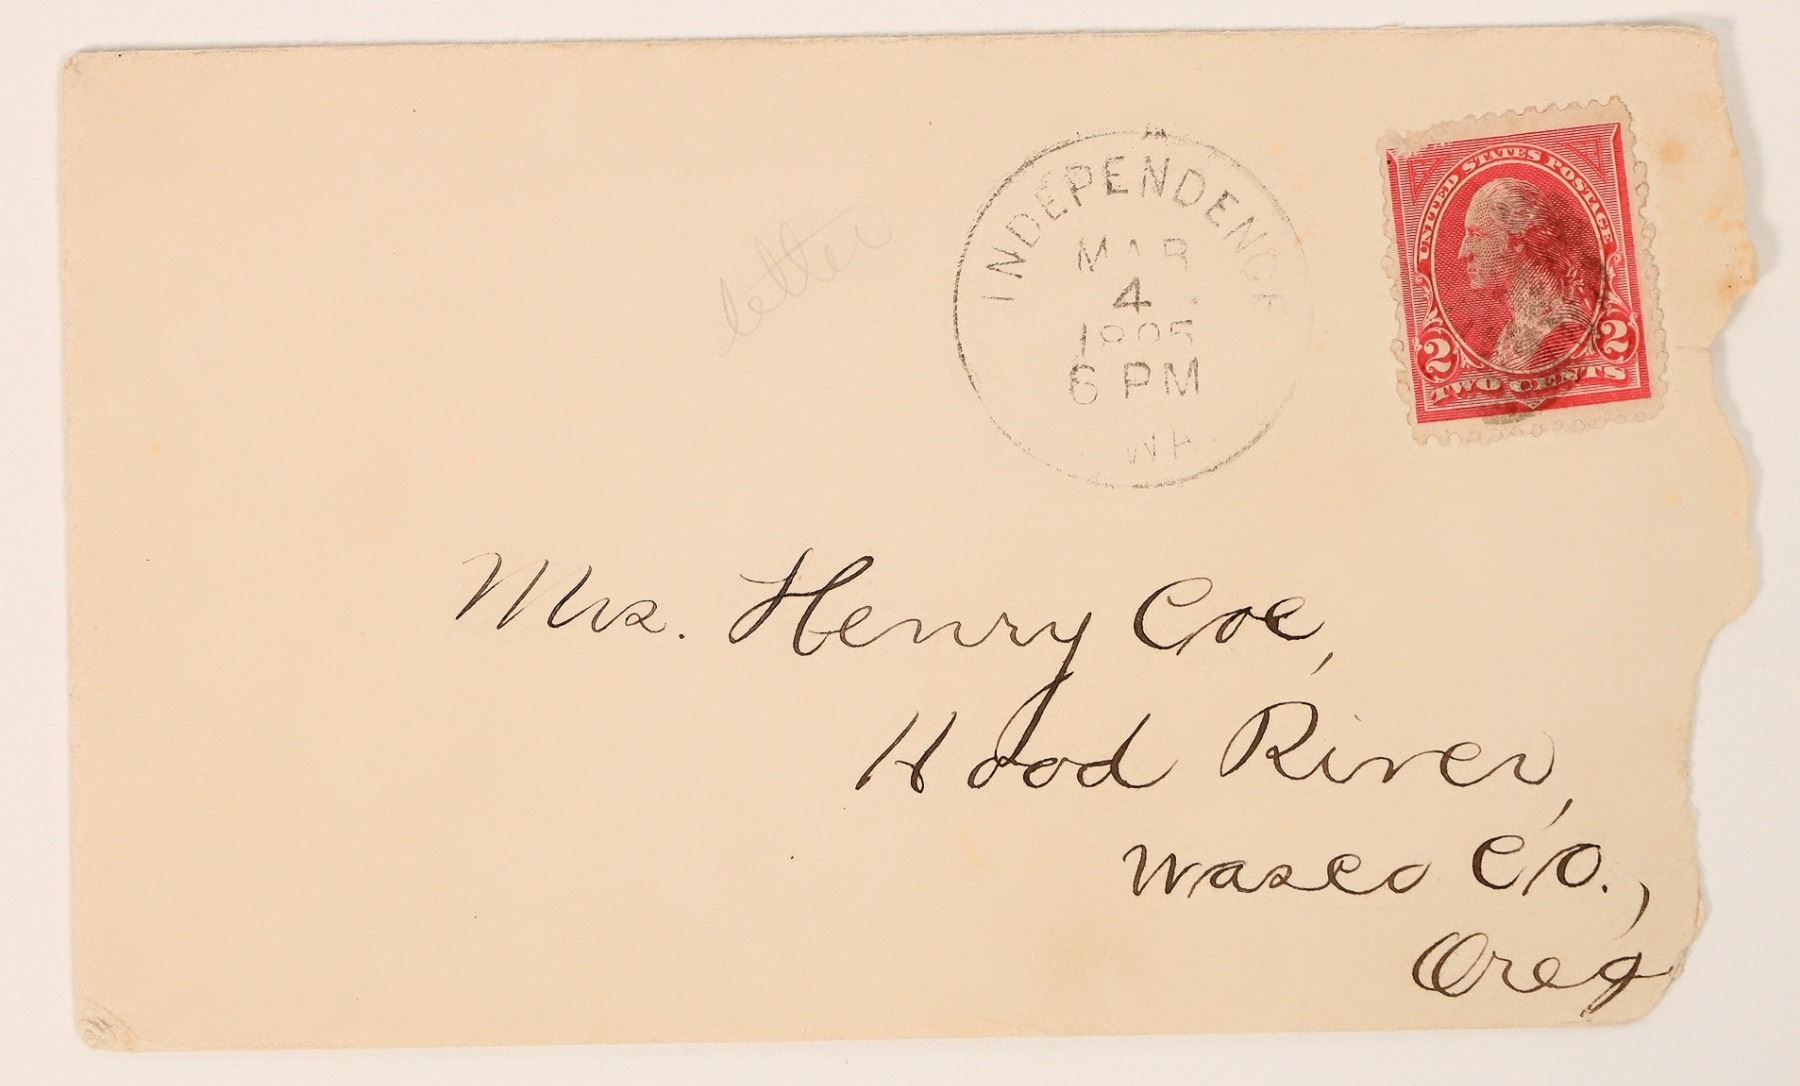 UNITED STATES POSTAGE
2 2
TWO CENTS
INDEPENDENCE
MAR
4
1895
6 PM
WA.
letter
Mrs. Henry Coe,
Hood River,
Wasco Co.,
Oreg